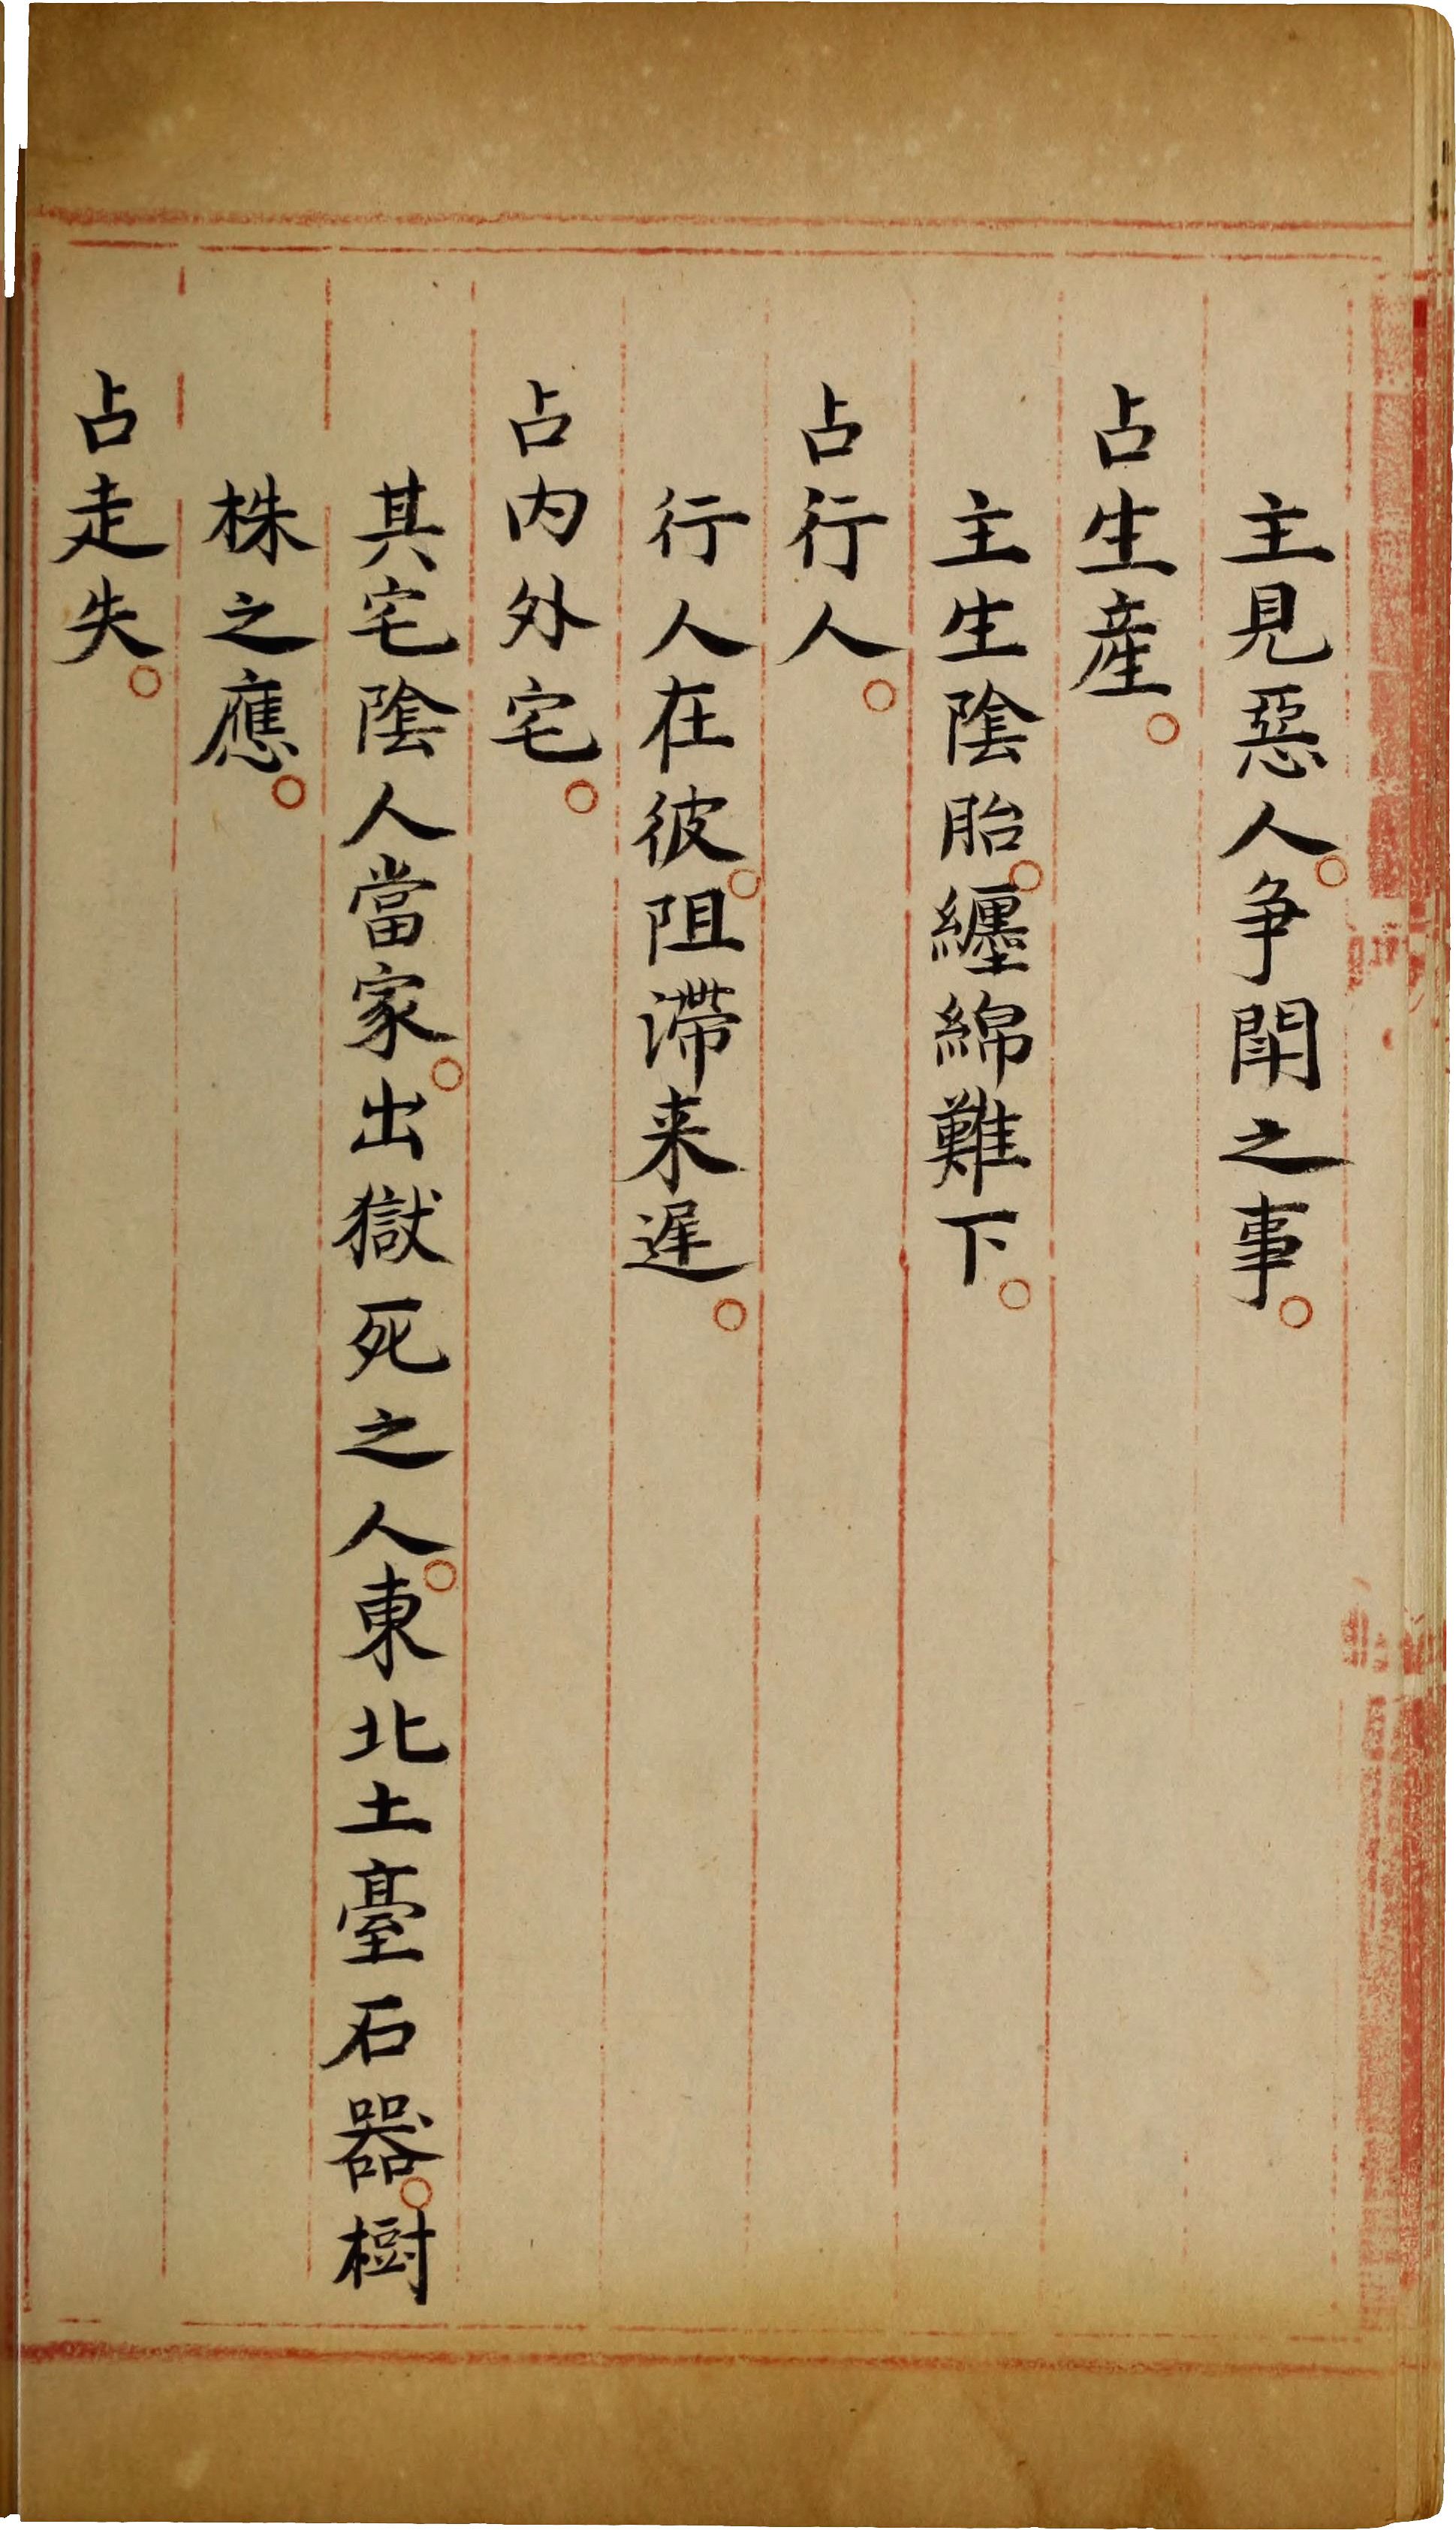 主見惡人。争閗之事。
占生產。
主生陰胎。纏綿難下。
占行人。
行人在彼。阻滯来遲。
占内外宅。
其宅陰人當家。出獄死之人。東北土臺石器。樹
株之應。
占走失。